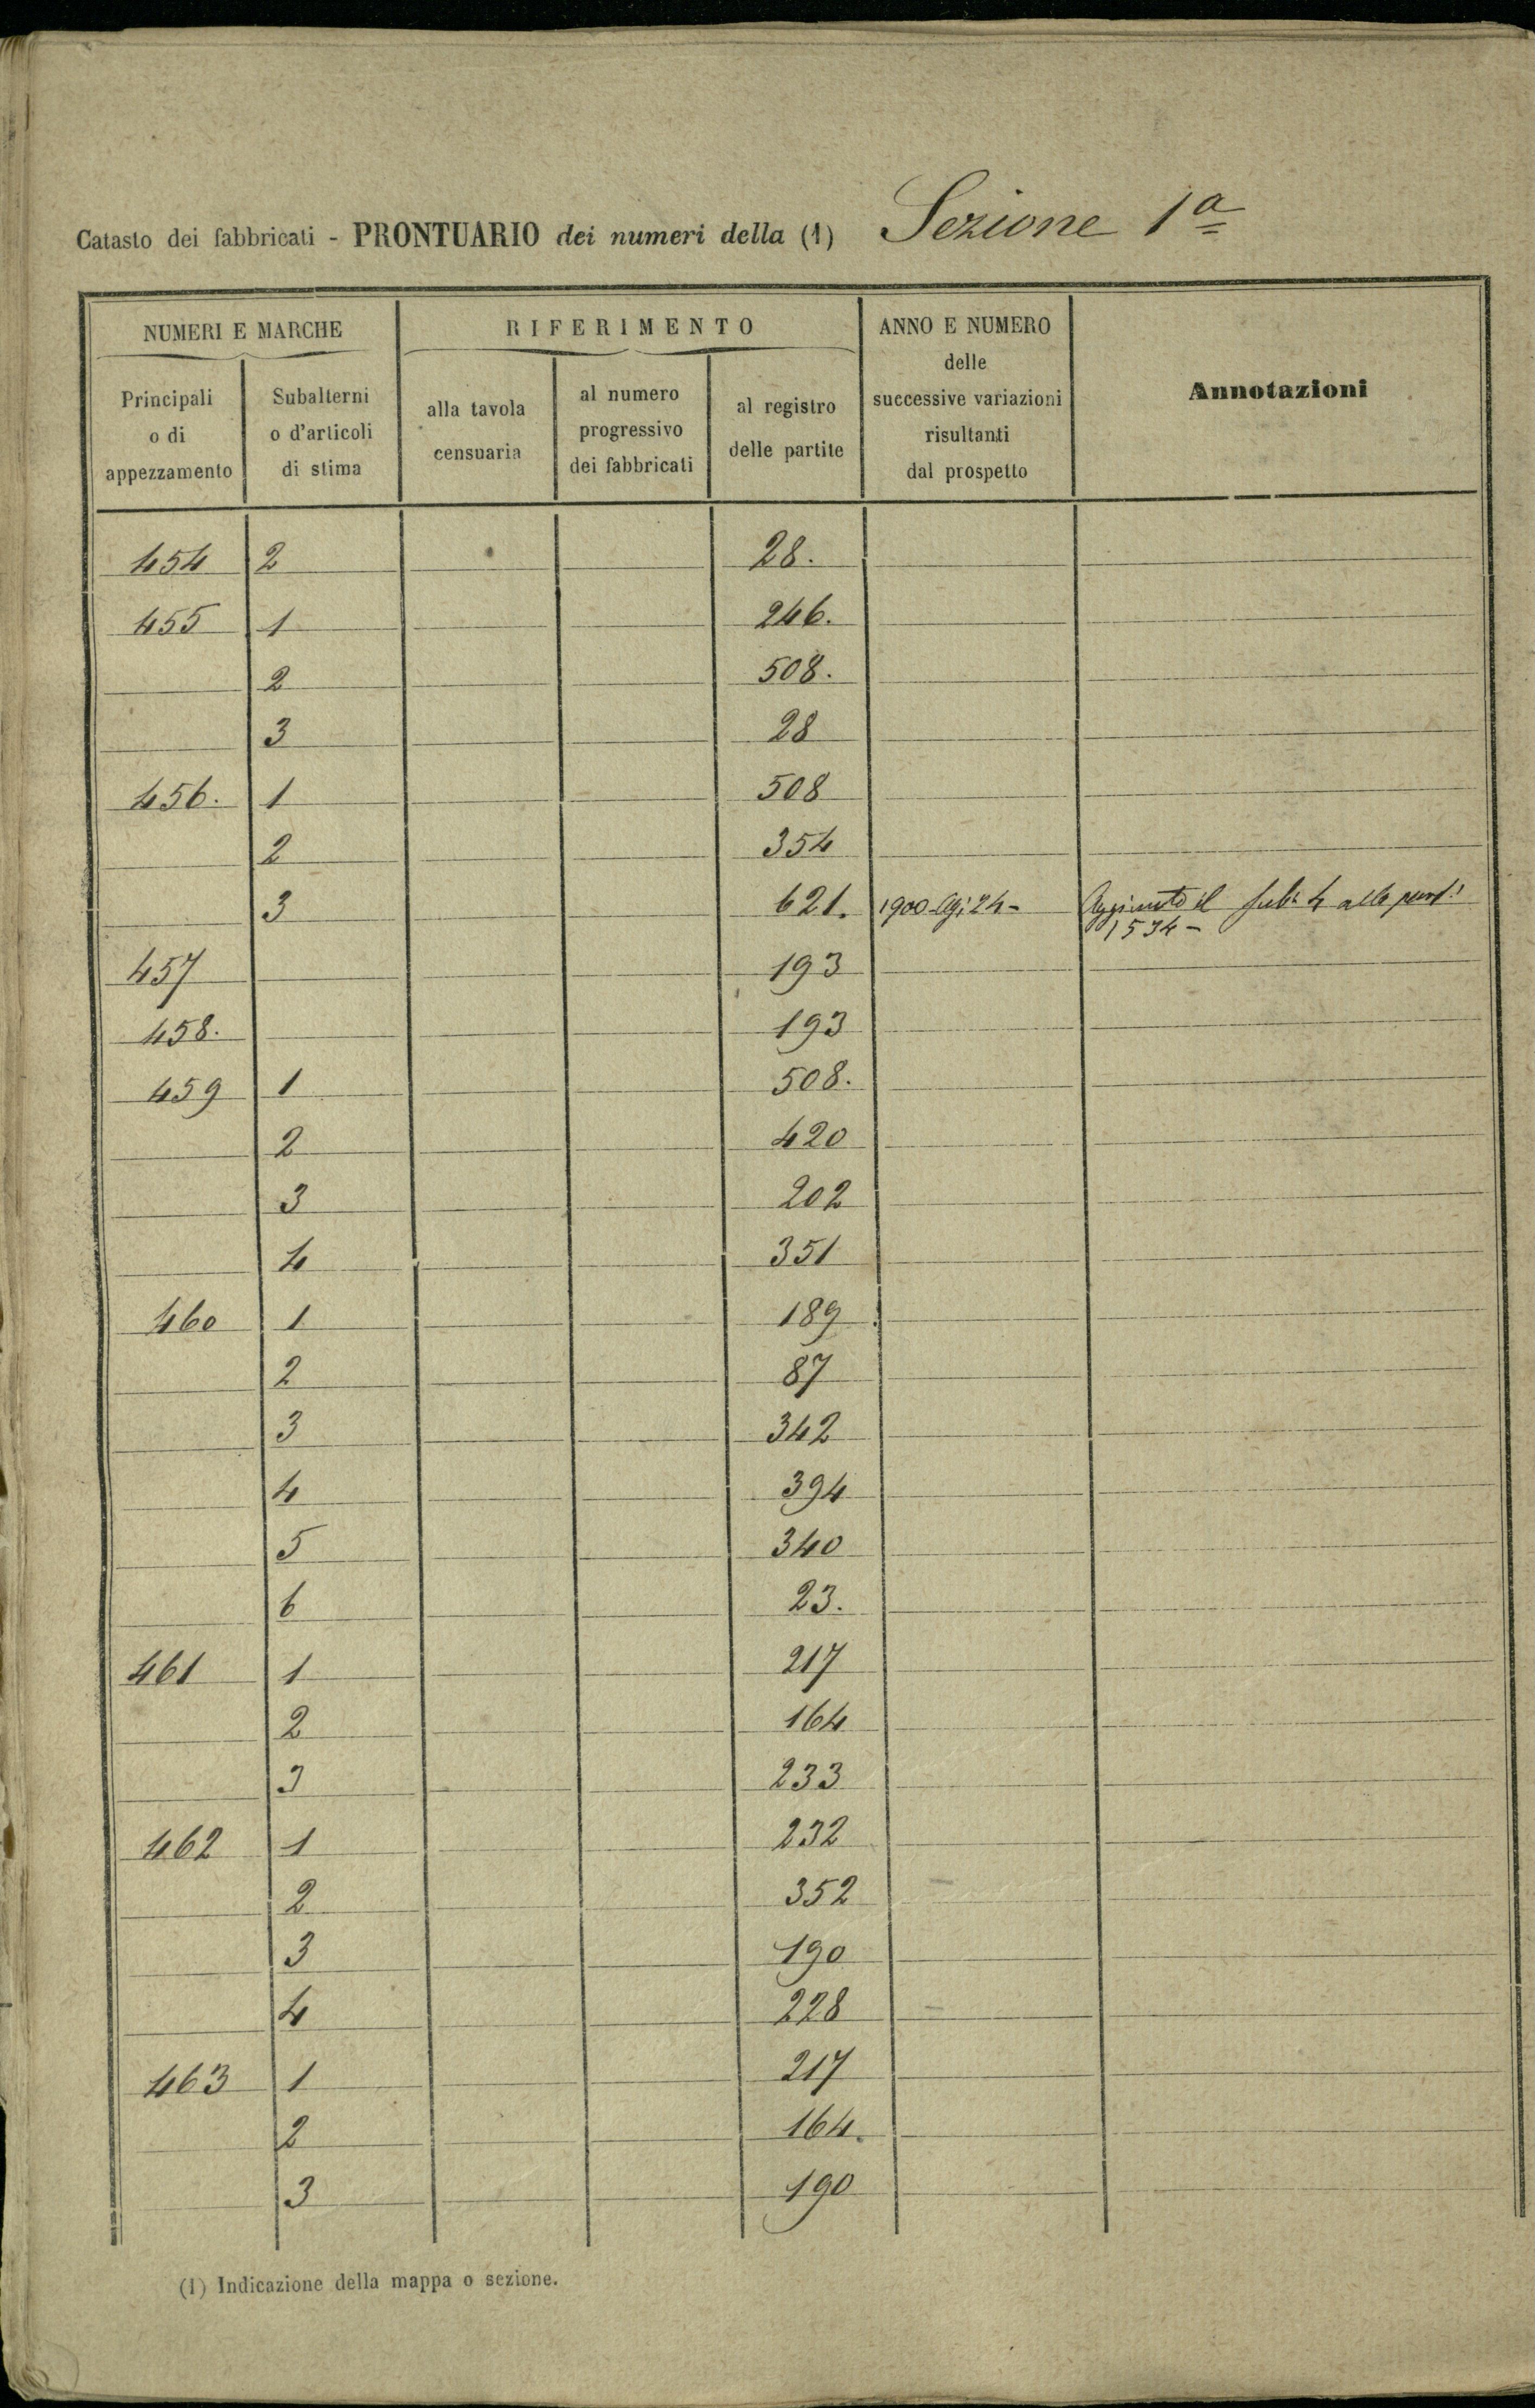 Catasto dei fabbricati - PRONTUARIO dei numeri della (1) Sezione 1ª
NUMERI E MARCHE
RIFERIMENTO
ANNO E NUMERO
delle
successive variazioni
risultanti
dal prospetto
Annotazioni
Principali
o di
appezzamento
Subalterni
o d'articoli
di stima
alla tavola
censuaria
al numero
progressivo
dei fabbricati
al registro
delle partite
454 2 28.
455 1 246.
2 508.
3 28
456. 1 508
2 354
3 621. 1900 24- Aggiunto il sub. 4 alla part.
1534-
457 193
458. 193
459 1 508.
2 420
3 202
4 351
460 1 189
2 87
3 342
4 394
5 340
6 23.
461 1 217
2 164
3 233
462 1 232
2 352
3 190
4 228
463 1 217
2 164.
3 190
(1) Indicazione della mappa o sezione.